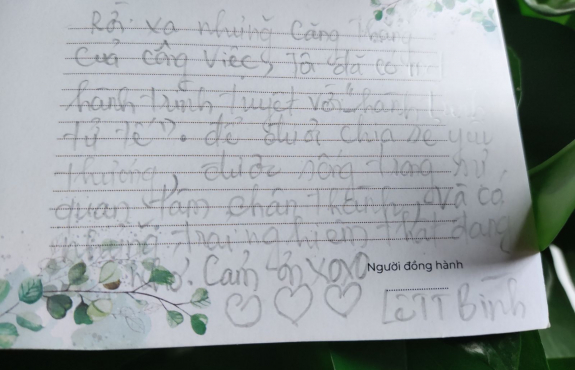 Rời xa những căng thẳng
của công việc, ta đã có 1
hành trình tuyệt vời "hành trình
tử tế". để được chia sẻ yêu
thương, được sống trong sự
quan tâm chân thành, và có
những trải nghiệm thật đáng
nhớ. Cảm ơn xoxo
Người đồng hành
♡ ♡ ♡
LÊTT Bình